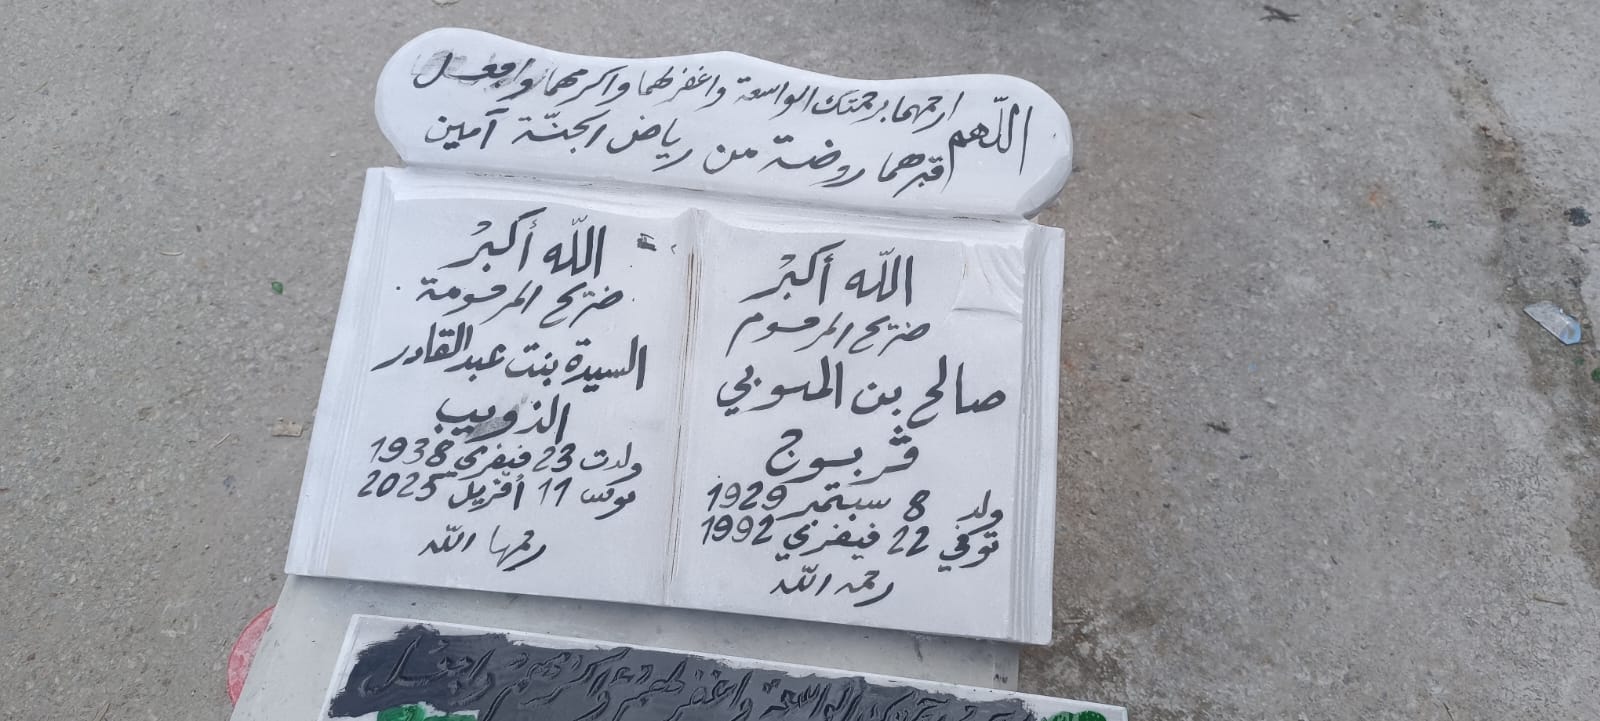 اللّهم ارحمهما برحمتك الواسعة واغفر لهما واكرمهما وافعل
قبرهما روضة من رياض الجنّة آمين
اللّه أكبر
ضريح المرحوم
صالح بن المـوبي
ڨربوج
ولد 8 سبتمبر 1929
توفي 22 فيفري 1992
رحمه اللّه
اللّه أكبر
ضريح المرحومة
السيدة بنت عبد القادر
الذويب
ولدت 23 فيفري 1938
11 أفريل 2025
رحمها اللّه
الواسعة واغفر لهم واكرمهم